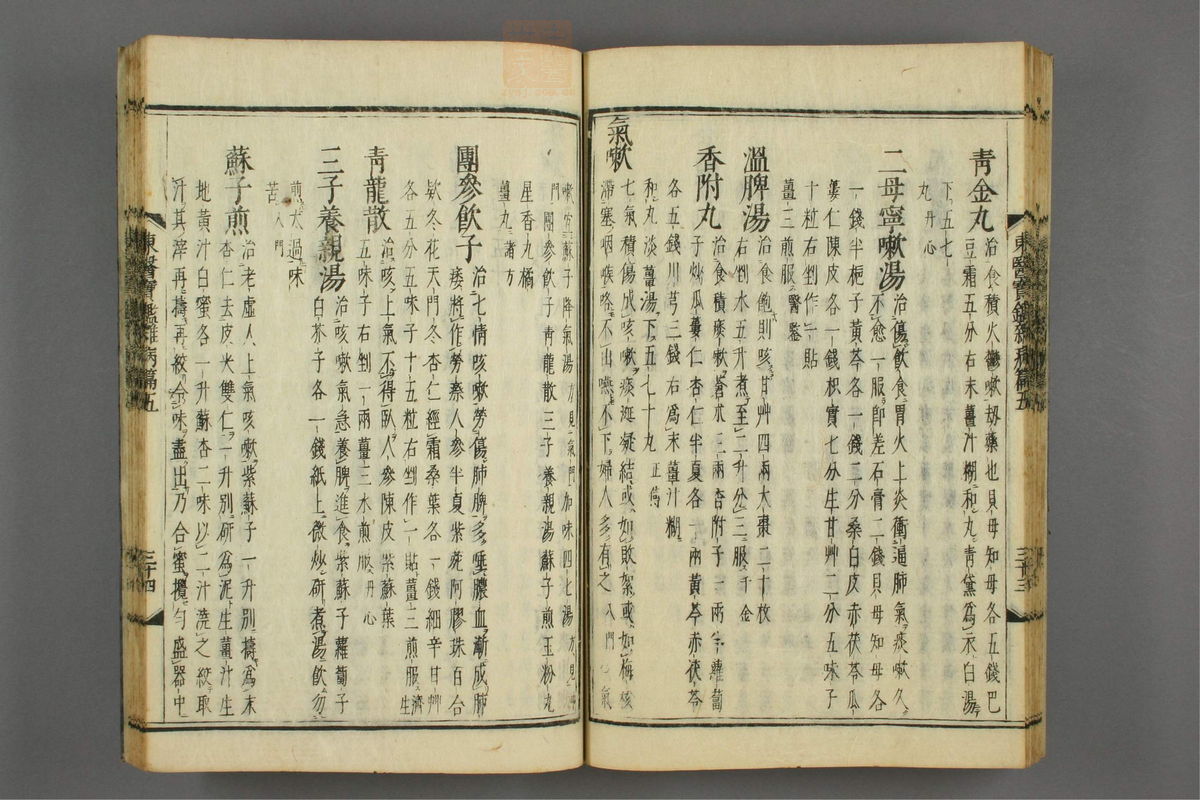 青金丸 治食積火鬱嗽劫藥也貝母知母各五錢巴
豆霜五分右末薑汁糊和丸青黛爲衣白湯
下五七丸丹心
二母寧嗽湯 治傷飮食胃火上炎衝逼肺氣痰嗽久
不愈一服卽差石膏二錢貝母知母各
一錢半梔子黃芩各一錢二分桑白皮赤茯苓瓜
蔞仁陳皮各一錢枳實七分生甘艸二分五味子
十粒右剉作一貼
薑三煎服醫鑑
溫脾湯 治食飽則咳甘艸四兩大棗二十枚
右剉水五升煮至二升分三服千金
香附丸 治食積痰嗽蒼朮三兩香附子一兩半蘿葍
子炒瓜蔞仁杏仁半夏各一兩黃芩赤茯苓
各五錢川芎三錢右爲末薑汁糊
和丸淡薑湯下五七十丸正傳
氣嗽 七氣積傷成咳嗽痰涎凝結或如敗絮或如梅核
滯塞咽喉咯不出嚥不下婦人多有之入門 氣
東醫寶鑑雜病篇五 三十三
嗽宜蘇子降氣湯方見氣門加味四七湯方見神
門團參飮子靑龍散三子養親湯蘇子煎玉粉丸
星香丸橘
薑丸諸方
團參飮子 治七情咳嗽勞傷肺脾多唾膿血漸成肺
痿將作勞瘵人參半夏紫菀阿膠珠百合
款冬花天門冬杏仁經霜桑葉各一錢細辛甘艸
各五分五味子十五粒右剉作一貼薑三煎服濟生
靑龍散 治咳上氣不得臥人參陳皮紫蘇葉
五味子右剉一兩薑三水煎服丹心
三子養親湯 治咳嗽氣急養脾進食紫蘇子蘿葍子
白芥子各一錢紙上微炒硏煮湯飮勿
煎太過味
苦入門
蘇子煎 治老虛人上氣咳嗽紫蘇子一升別擣爲末
杏仁去皮尖雙仁一升別硏爲泥生薑汁生
地黃汁白蜜各一升蘇杏二味以二汁澆之絞取
汁其滓再擣再絞令味盡出乃合蜜攪勻盛器中
東醫寶鑑雜病篇五 三十四